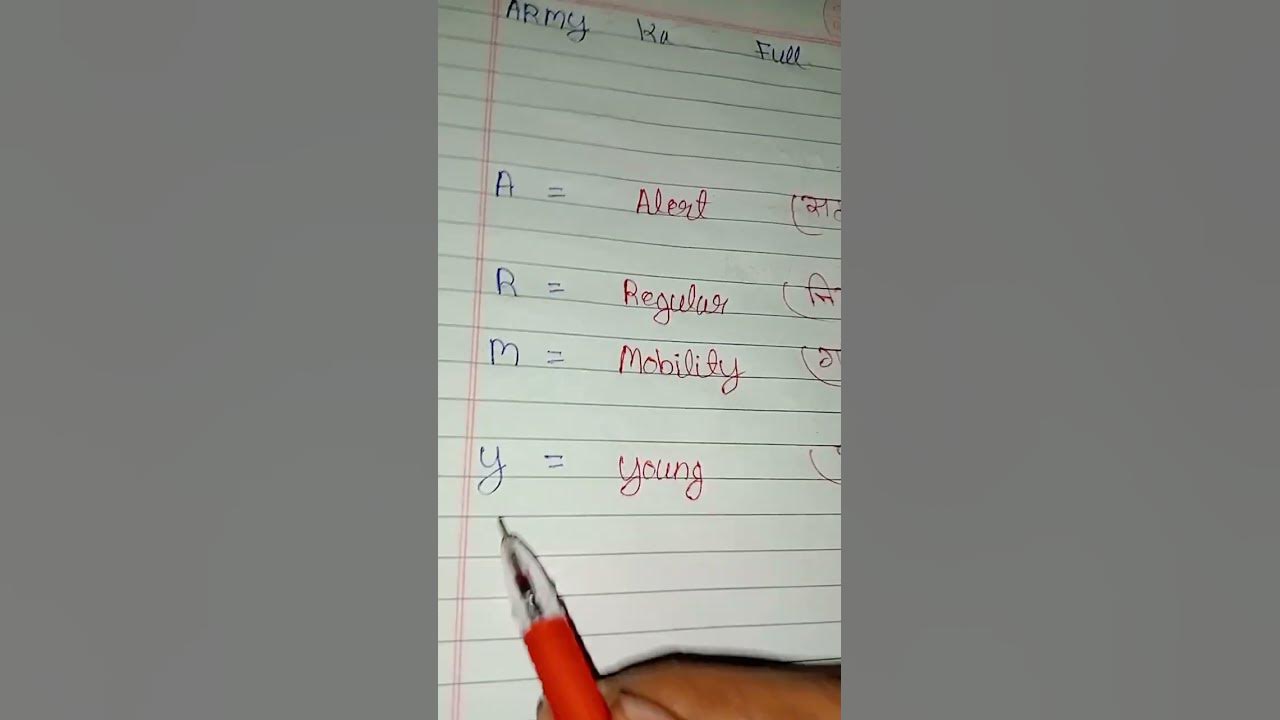 ARMY Ka Full
A = Alert
R = Regular
M = Mobility
y = young